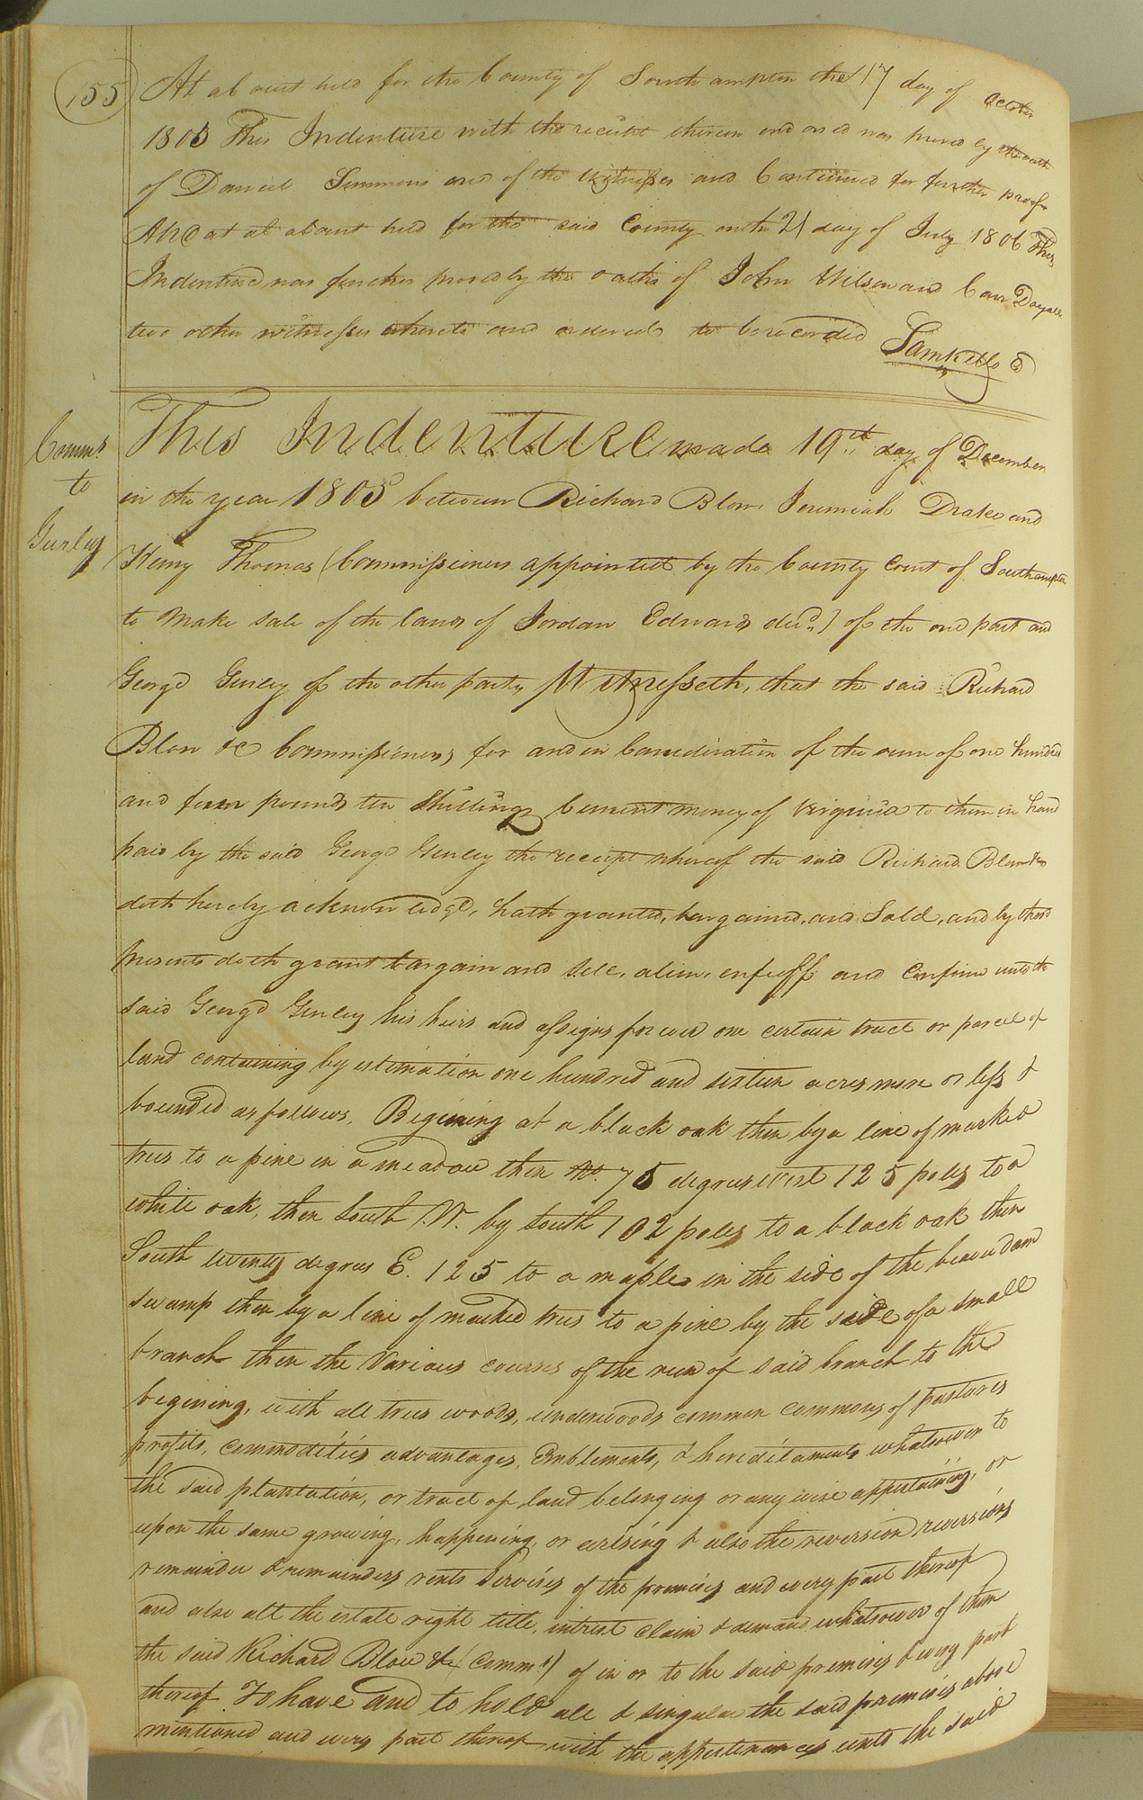 155
At a Court held for the County of Southampton the 17 day of October
1805 This Indenture with the receipt thereon endorsed was proved by the oath
of Daniel Simmons one of the witnesses and Continued for further proof
And at at a Court held for the said County on the 21 day of July 1806 This
Indenture was further proved by the oaths of John Wilson and Carr
two other witnesses thereto and ordered to be recorded Saml Kello C
Comms
to
Gurley
This Indenture made 19th day of December
in the year 1805 between Richard Blow Jeremiah Drake and
Henry Thomas (Commissioners appointed by the County Court of Southampton
to make sale of the lands of Jordan Edwards decd.) of the one part and
George Gurley of the other party Witnesseth, that the said Richard
Blow &c Commissioners, for and in Consideration of the sum of one hundred
and four pounds ten Shillings Current money of Virginia to them in hand
paid by the said George Gurley the receipt whereof the said Richard Blow &c
doth hereby acknowledge, hath granted, bargained, and Sold, and by these
presents doth grant bargain and sell, alien, enfeoff and Confirm unto the
said George Gurley his heirs and assigns forever one certain tract or parcel of
land containing by estimation one hundred and sixteen acres more or less &
bounded as follows. Begining at a black oak then by a line of marked
trees to a pine in a meadow then No. 75 degrees west 125 poles to a
white oak, then South W. by South 102 poles to a black oak then
South twenty degrees E. 125 to a maple in the side of the beaverdam
swamp then by a line of marked trees to a pine by the side of a small
branch then the Various courses of the run of said branch to the
begining, with all trees woods, underwoods common commons of pastures
profits, commodities advantages, Emblements, & hereditaments whatsoever to
the said plantation, or tract of land belonging or any wise appertaining, or
upon the same growing, happening, or arising & also the reversion reversions
remainder & remainders rents Services of the premises and every part thereof
and also all the estate right title, intrest claim & demand whatsoever of them
the said Richard Blow &c (Comms) of in or to the said premises & every part
thereof To have and to hold all & singular the said premises above
mentioned and every part thereof with the appertenances unto the said